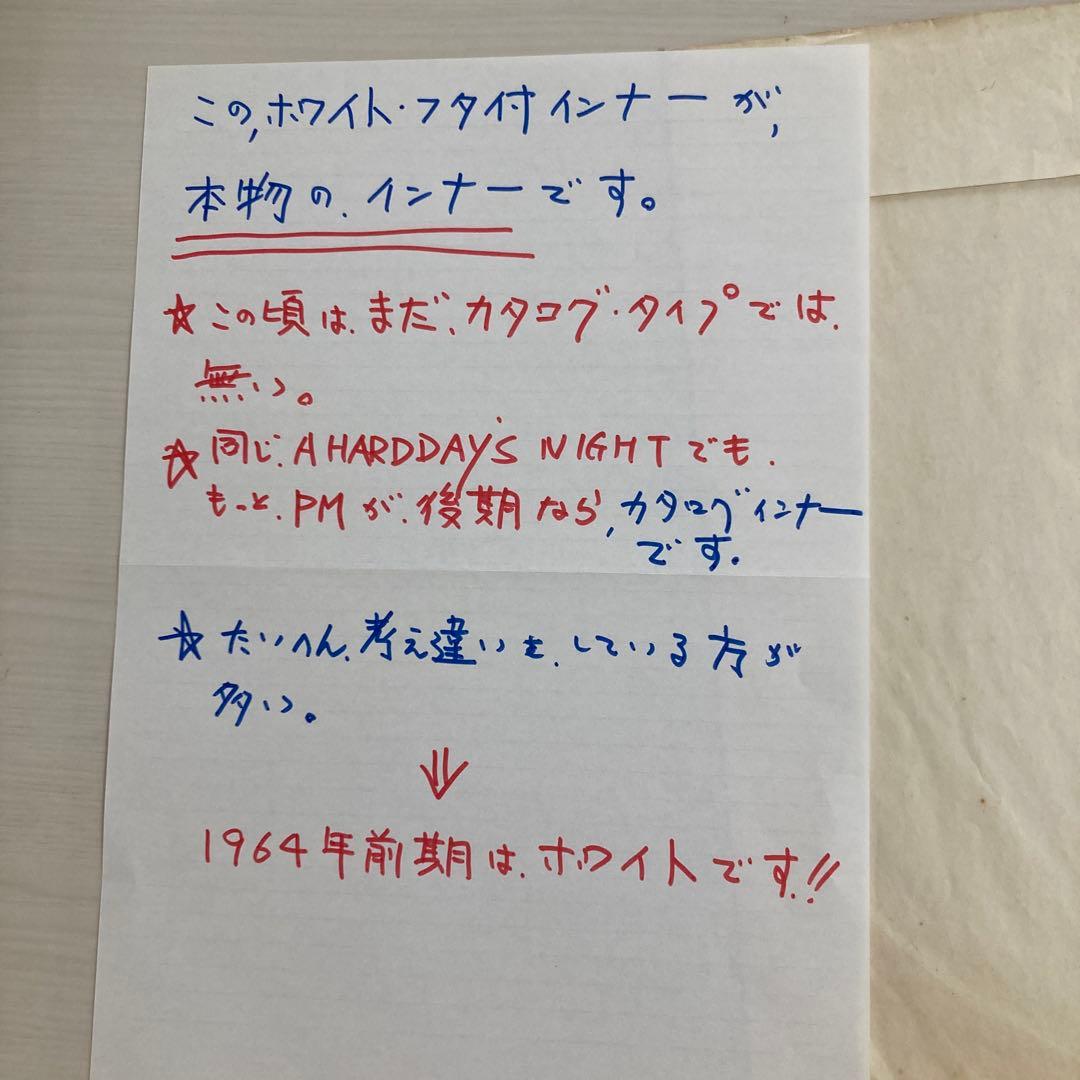 この,ホワイト・フタ付インナーが,
本物の、インナーです。
☆この頃は、まだ、カタログ・タイプでは、
無い。
☆同じ、A HARD DAY'S NIGHTでも、
もっと、PMが、後期なら,カタログインナー
です。
☆たいへん、考え違いを、している方が
多い。
⇓
1964年前期は、ホワイトです!!